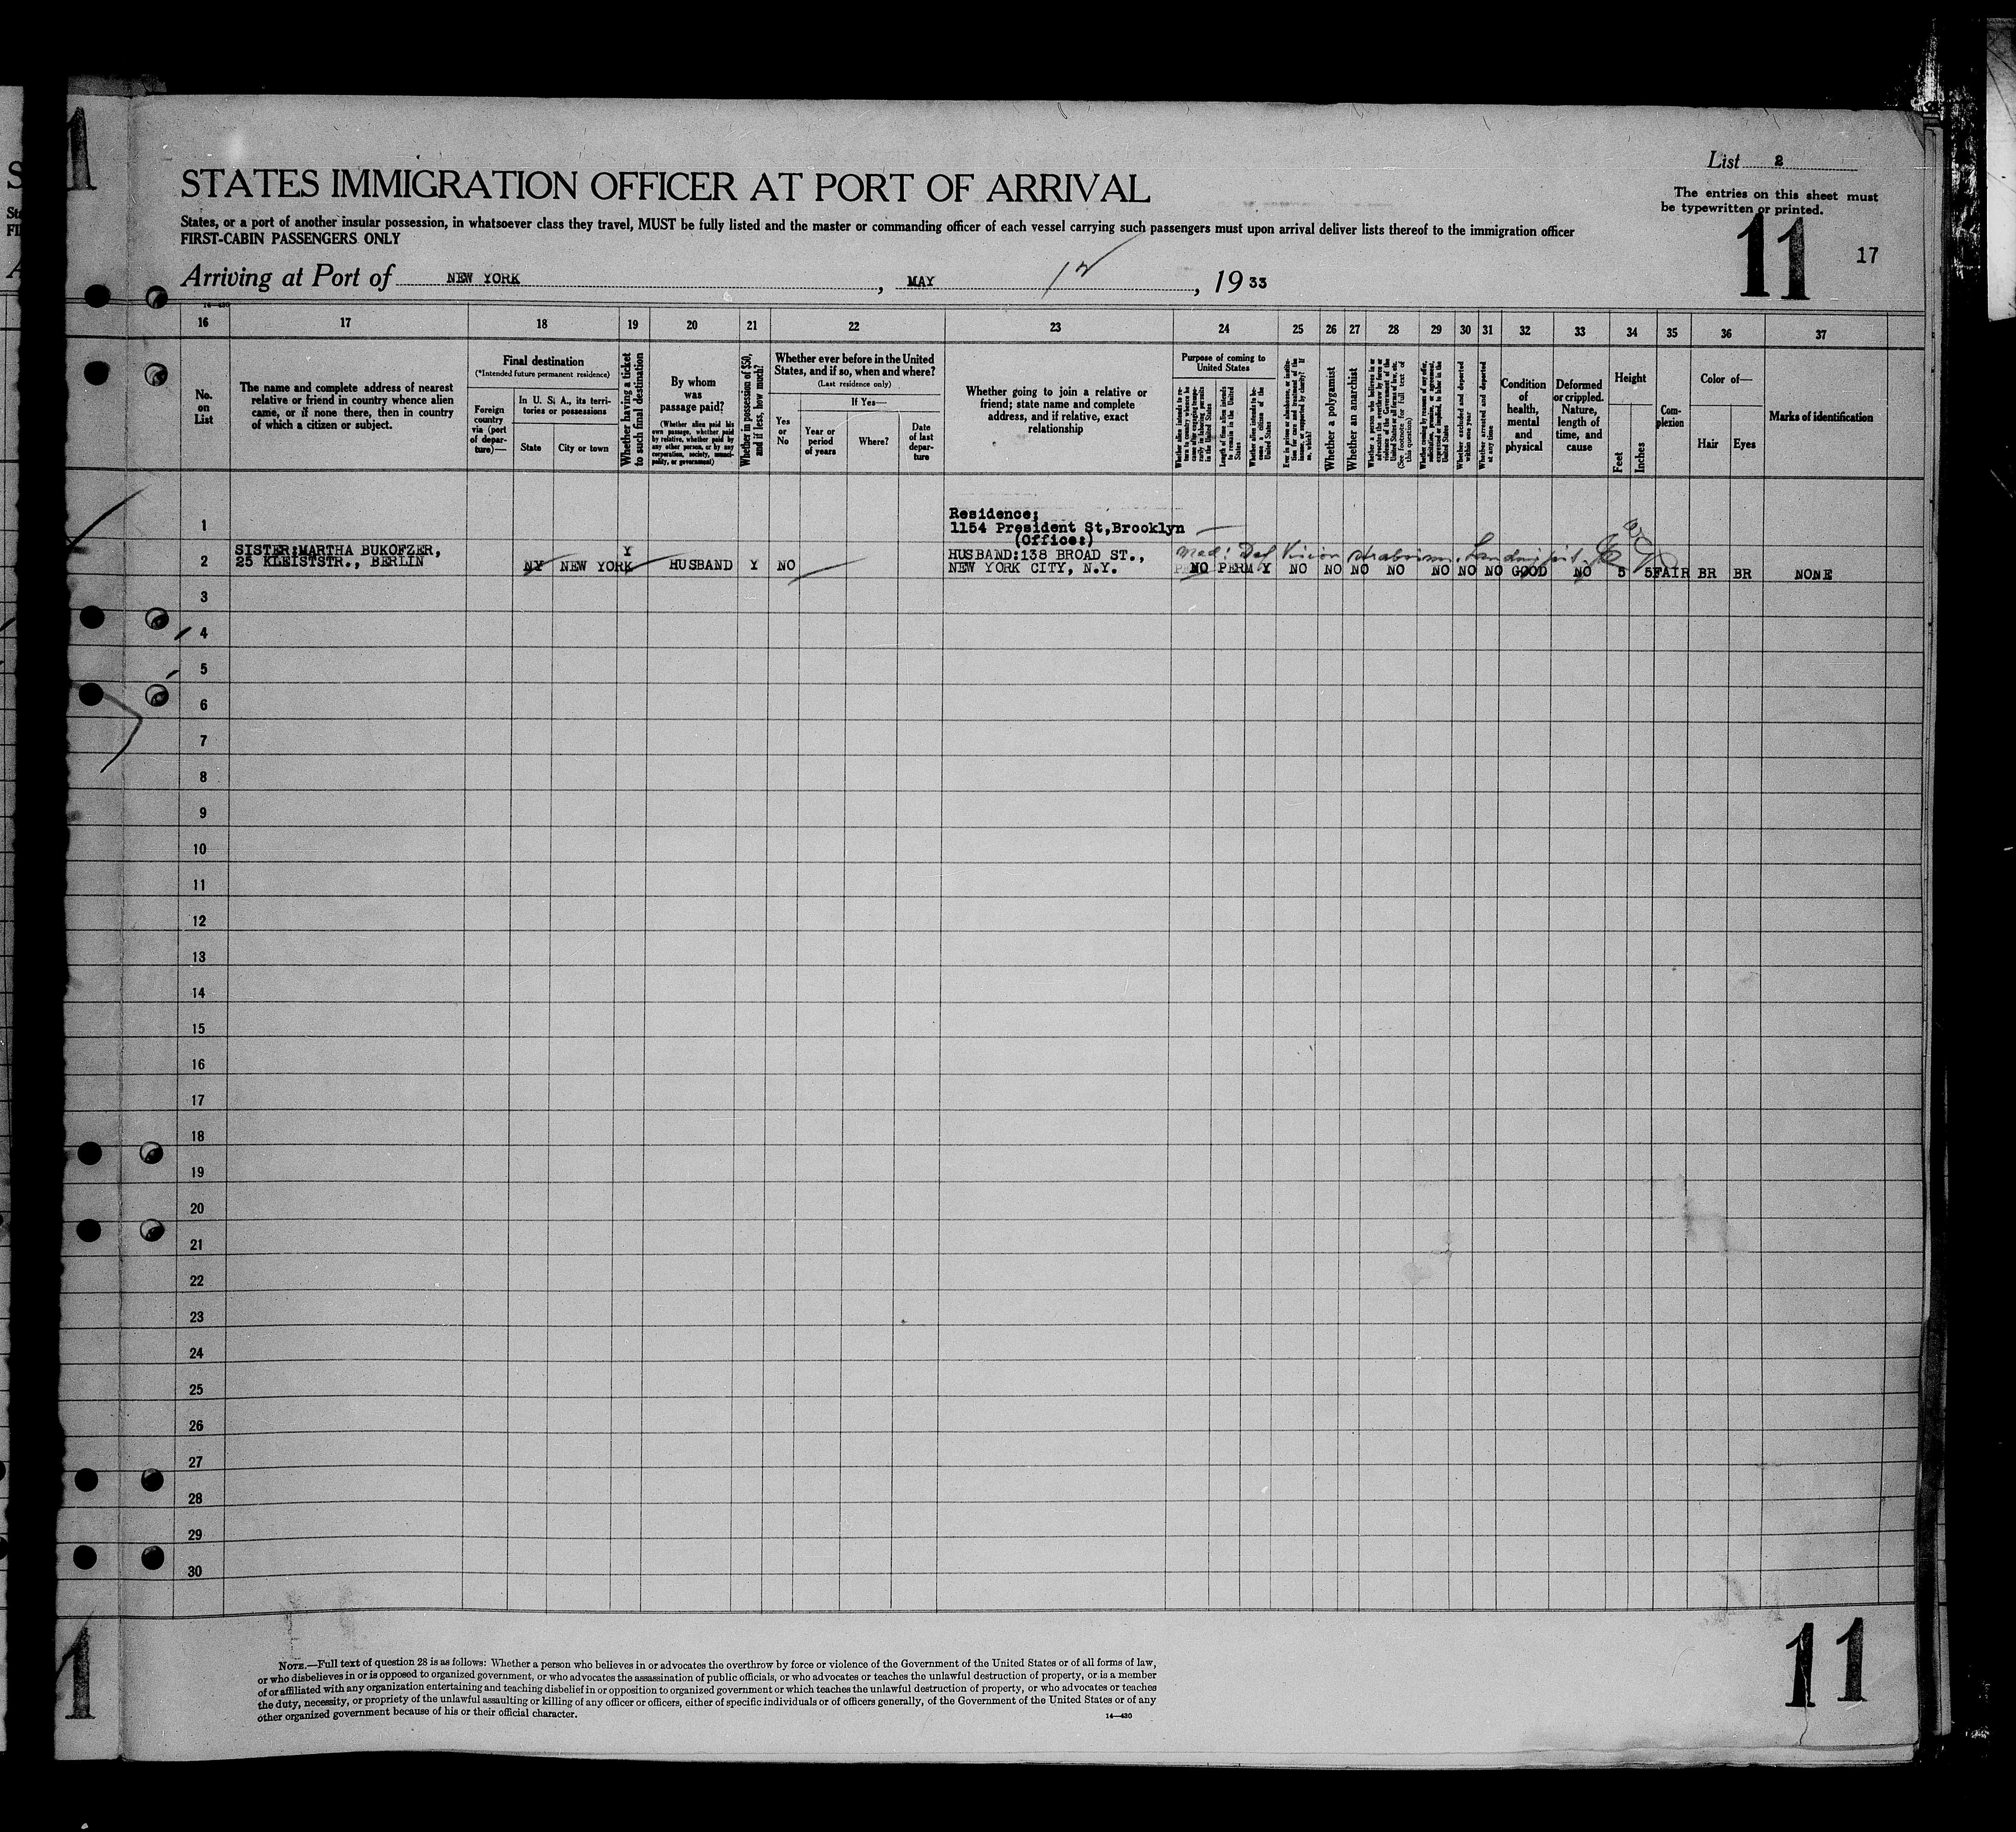 List 2
STATES IMMIGRATION OFFICER AT PORT OF ARRIVAL
The entries on this sheet must
be typewritten or printed.
States, or a port of another insular possession, in whatsoever class they travel, MUST be fully listed and the master or commanding officer of each vessel carrying such passengers must upon arrival deliver lists thereof to the immigration officer
FIRST-CABIN PASSENGERS ONLY
11 17
Arriving at Port of NEW YORK, MAY 12, 1933
14—430
16 17 18 19 20 21 22 23 24 25 26 27 28 29 30 31 32 33 34 35 36 37
No.
on
List
The name and complete address of nearest
relative or friend in country whence alien
came, or if none there, then in country
of which a citizen or subject.
Final destination
(*Intended future permanent residence)
Foreign
country
via (port
of depar-
ture)—
In U. S. A., its terri-
tories or possessions
State
City or town
Whether having a ticket
to such final destination
By whom
was
passage paid?
(Whether alien paid his
own passage, whether paid
by relative, whether paid by
any other person, or by any
corporation, society, munici-
pality, or government)
Whether in possession of $50,
and if less, how much?
Whether ever before in the United
States, and if so, when and where?
(Last residence only)
Yes
or
No
If Yes—
Year or
period
of years
Where?
Date
of last
depar-
ture
Whether going to join a relative or
friend; state name and complete
address, and if relative, exact
relationship
Purpose of coming to
United States
Whether alien intends to re-
turn to country whence he
came after engaging tempo-
rarily in laboring pursuits
in the United States
Length of time alien intends
to remain in the United
States
Whether alien intends to be-
come a citizen of the
United States
Ever in prison or almshouse, or institu-
tion for care and treatment of the
insane, or supported by charity? If
so, which?
Whether a polygamist
Whether an anarchist
Whether a person who believes in or
advocates the overthrow by force or
violence of the Government of the
United States or all forms of law, etc.
(See footnote for full text of
this question)
Whether coming by reason of any offer,
solicitation, promise, or agreement,
expressed or implied, to labor in the
United States
Whether excluded and deported
within one year
Whether arrested and deported
at any time
Condition
of
health,
mental
and
physical
Deformed
or crippled.
Nature,
length of
time, and
cause
Height
Feet
Inches
Com-
plexion
Color of—
Hair
Eyes
Marks of identification
1
Residence;
1154 President St,Brooklyn
(Office:)
2
SISTER:MARTHA BUKOFZER,
25 KLEISTSTR., BERLIN
NY NEW YORK Y HUSBAND Y NO
HUSBAND:138 BROAD ST.,
NEW YORK CITY, N.Y.
Med: Def Vision strabism.
NO PERM Y NO NO NO NO NO NO NO GOOD NO 5 5 FAIR BR BR NONE
3
4
5
6
7
8
9
10
11
12
13
14
15
16
17
18
19
20
21
22
23
24
25
26
27
28
29
30
NOTE.—Full text of question 28 is as follows: Whether a person who believes in or advocates the overthrow by force or violence of the Government of the United States or of all forms of law,
or who disbelieves in or is opposed to organized government, or who advocates the assassination of public officials, or who advocates or teaches the unlawful destruction of property, or is a member
of or affiliated with any organization entertaining and teaching disbelief in or opposition to organized government or which teaches the unlawful destruction of property, or who advocates or teaches
the duty, necessity, or propriety of the unlawful assaulting or killing of any officer or officers, either of specific individuals or of officers generally, of the Government of the United States or of any
other organized government because of his or their official character.
14—430
11